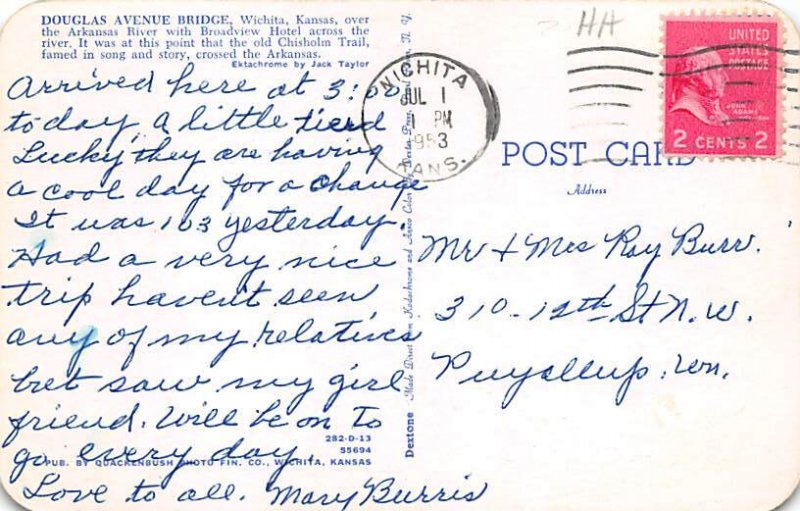 DOUGLAS AVENUE BRIDGE, Wichita, Kansas, over
the Arkansas River with Broadview Hotel across the
river. It was at this point that the old Chisholm Trail,
famed in song and story, crossed the Arkansas.
Ektachrome by Jack Taylor
Arrived here at 3:00
today, a little tierd
Lucky they are having
a cool day for a change
It was 103 yesterday.
Had a very nice
trip havent seen
any of my relatives
but saw my girl
friend. Will be on to
go every day.
Love to all. Mary Burris
282-D-13
S5694
PUB. BY QUACKENBUSH PHOTO FIN. CO., WICHITA, KANSAS
Dextone
Made Direct from Kodachrome and Ansco Color by Dexter Press, N. Y.
WICHITA
JUL 1
1 PM
1953
KANS.
HH
UNITED
STATES
POSTAGE
JOHN ADAMS
2 CENTS 2
POST CARD
Address
Mr & Mrs Ray Burr.
310-12th St N.W.
Puyallup. Wn.